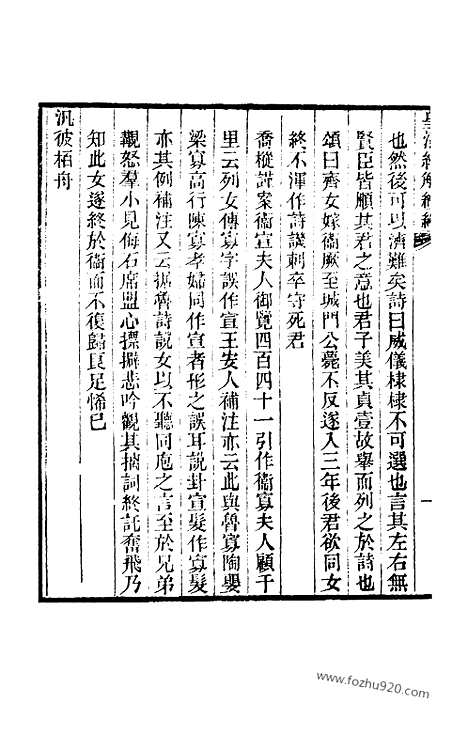 皇清經解續編
也然後可以濟難矣詩曰威儀棣棣不可選也言其左右無
賢臣皆順其君之意也君子美其貞壹故舉而列之於詩也
頌曰齊女嫁衞厥至城門公薨不反遂入三年後君欲同女
終不渾作詩譏刺卒守死君
喬樅謹案衞宣夫人御覽四百四十一引作衞寡夫人顧千
里云列女傳寡字誤作宣王安人補注亦云此與魯寡陶嬰
梁寡高行陳寡孝婦同作宣者形之誤耳說卦宣髮作寡髮
亦其例補注又云據魯詩說女以不聽同庖之言至於兄弟
覯怒羣小見侮石席盟心摽擗悲吟觀其摛詞終託奮飛乃
知此女遂終於衞而不復歸良足悕已
汎彼柏舟
一
www.fozhu920.com